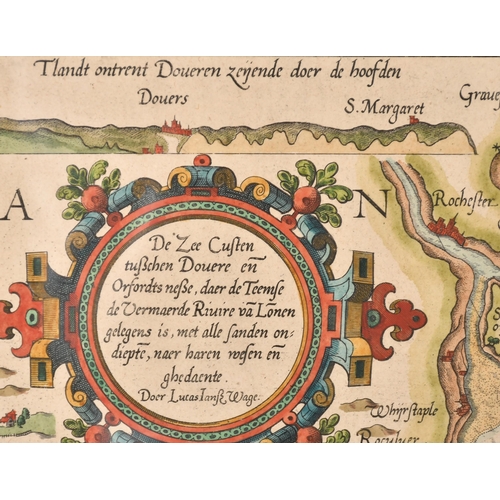 Tlandt ontrent Doueren zeijende doer de hoofden
Douers
S. Margaret
Graues
A
N
Rochester
De Zee Custen
tußchen Douere en̄
Orfordts neße, daer de Teemse
de Vermaerde Riuire vā Lonen
gelegens is, met alle sanden on-
diepte, naer haren wesen en̄
ghedaente.
Doer Lucas Ianß Wage.
Whijrstaple
Roculuer